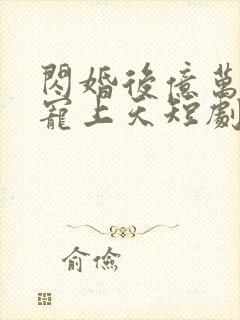 閃婚後億萬
寵上天短劇
俞儉